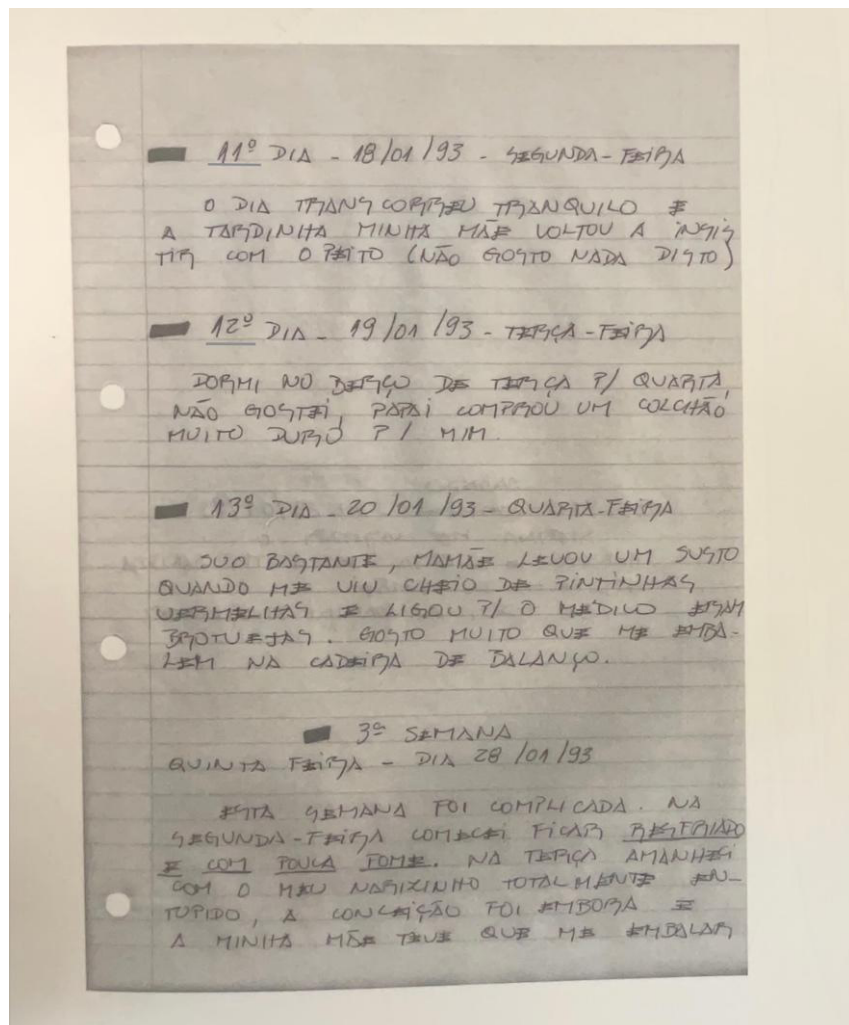 11º DIA - 18/01/93 - SEGUNDA-FEIRA
O DIA TRANSCORREU TRANQUILO E
A TARDINHA MINHA MÃE VOLTOU A INSIS
TIR COM O PEITO (NÃO GOSTO NADA DISTO)
12º DIA - 19/01/93 - TERÇA-FEIRA
DORMI NO BERÇO DE TERÇA P/ QUARTA,
NÃO GOSTEI, PAPAI COMPROU UM COLCHÃO
MUITO DURO P/ MIM.
13º DIA - 20/01/93 - QUARTA-FEIRA
SUO BASTANTE, MAMÃE LEVOU UM SUSTO
QUANDO ME VIU CHEIO DE PINTINHAS
VERMELHAS E LIGOU P/ O MEDICO ERAM
BROTUEJAS. GOSTO MUITO QUE ME EMBA-
LEM NA CADEIRA DE BALANÇO.
3ª SEMANA
QUINTA FEIRA - DIA 28/01/93
ESTA SEMANA FOI COMPLICADA. NA
SEGUNDA-FEIRA COMECEI FICAR RESFRIADO
E COM POUCA FOME. NA TERÇA AMANHECI
COM O MEU NARIXINHO TOTALMENTE EN-
TUPIDO, A CONCEIÇÃO FOI EMBORA E
A MINHA MÃE TEVE QUE ME EMBALAR